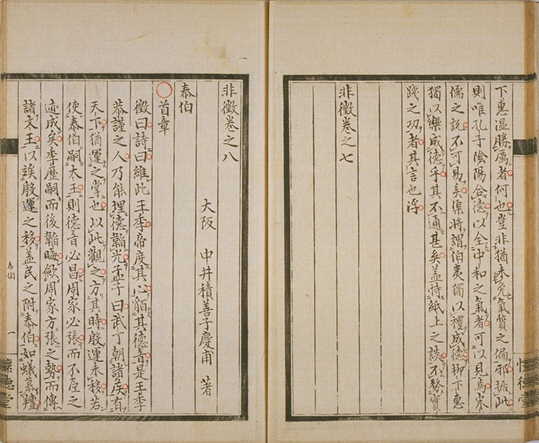 下惠温 厲者何也豈非猶未免氣質之偏邪據此
則唯孔子陰陽合德以全中和之氣者可以見焉宋
儒之説不可易矣渠將謂伯夷獨以禮成德柳下惠
獨以樂成德乎其不通甚矣蓋恃紙上之談不察實
踐之功者其言也浮
非徵卷之七
非徵卷之八
大阪 中井積善子慶甫 著
泰伯
首章
徵曰詩曰維此王季帝度其心貊其德音是王季
恭謹之人乃能埋德韜光孟子曰武丁朝諸侯有
天下猶運之掌也以此觀之方其時殷運未移若
使泰伯嗣太王則德音必昌周家必張而不居之
適成矣季歷嗣而後韜晦歛周家方張之勢而傳
諸文王以俟殷運之移蓋民之附泰伯如蟻慕羶
泰伯
一
懷德堂